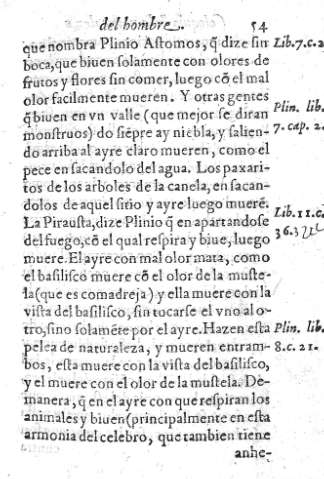 del hombre. 54
que nombra Plinio Astomos, q̃ dize sin Lib.7.c.2
boca, que biuen solamente con olores de
frutos y flores sin comer, luego cõ el mal
olor facilmente mueren. Y otras gentes
q̃ biuen en vn valle (que mejor se diran Plin. lib.
monstruos) do siẽpre ay niebla, y salien- 7. cap. 2.
do arriba al ayre claro mueren, como el
pece en sacandolo del agua. Los paxari-
tos de los arboles de la canela, en sacan-
dolos de aquel sitio y ayre luego muerẽ.
La Pirausta, dize Plinio q̃ en apartandose Lib.11.c.
del fuego, cõ el qual respira y biue, luego 36.
muere. El ayre con mal olor mata, como
el basilisco muere cõ el olor de la muste-
la (que es comadreja) y ella muere con la
vista del basilisco, sin tocarse el vno al o-
tro, sino solamẽte por el ayre. Hazen esta Plin. lib.
pelea de naturaleza, y mueren entram- 8.c.21.
bos, esta muere con la vista del basilisco,
y el muere con el olor de la mustela. De-
manera, q̃ en el ayre con que respiran los
animales y biuen (principalmente en esta
armonia del celebro, que tambien tiene
anhe-